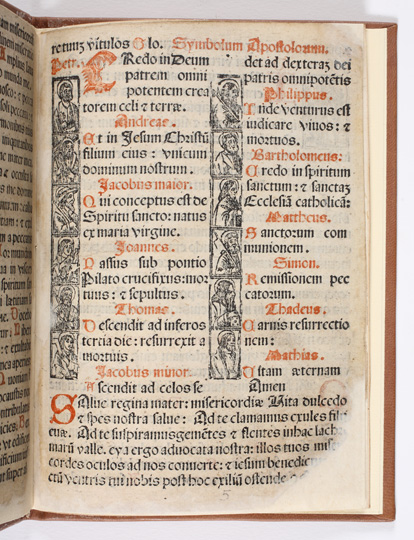 retuum vitulos Glo. Symbolum Apostolorum.
Petr. CRedo in Deum
patrem omni
potentem crea
torem celi & terræ.
Andreas.
Et in Jesum Christū
filium eius: vnicum
dominum nostrum.
Jacobus maior.
Qui conceptus est de
Spiritu sancto: natus
ex maria virgine.
Joannes.
Passus sub pontio
Pilato crucifixus: mor
tuus: & sepultus.
Thomas.
Descendit ad inferos
tercia die: resurrexit a
mortuis.
Jacobus minor.
Ascendit ad celos se
det ad dexteraʒ dei
patris omnipotētis
Philippus.
Inde venturus est
iudicare viuos: &
mortuos.
Bartholomeus.
Credo in spiritum
sanctum: & sanctaʒ
Ecclesiā catholicā:
Mattheus.
Sanctorum com
munionem.
Simon.
Remissionem pec
catorum.
Thadeus.
Carnis resurrectio
nem:
Mathias.
Vitam æternam
Amen
SAlue regina mater: misericordiæ Vita dulcedo
& spes nostra salue: Ad te clamamus exules filii
euæ. Ad te suspiramus gemētes & flentes in hac lachri
marū valle. eya ergo aduocata nostra: illos tuos mise
cordes oculos ad nos conuerte: & iesum benedic
ctū ventris tui nobis post hoc exiliū ostende